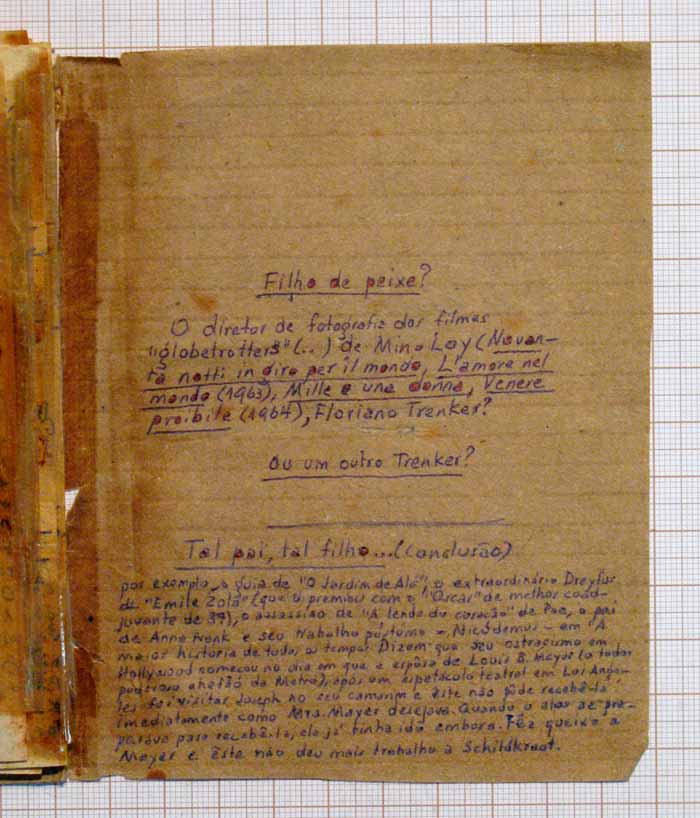 Filho de peixe?
O diretor de fotografia dos filmes
"globetrotters" (...) de Mino Loy (Novan-
ta notti in giro per il mondo, L'amore nel
mondo (1963), Mille e una donna, Venere
proibita (1964), Floriano Trenker?
Ou um outro Trenker?
Tal pai, tal filho...(conclusão)
por exemplo, o guia de "O Jardim de Alá", o extraordinário Dreyfus
de "Emile Zola" (que o premiou com o "Oscar" de melhor coad-
juvante de 37), o assassino de "A lenda do coração" de Poe, o pai
de Anne Frank e seu trabalho póstumo - Nicodemus - em "A
maior história de todos os tempos. Dizem que seu ostracismo em
Hollywood começou no dia em que a espôsa de Louis B. Mayer (o todo
poderoso chefão da Metro), após um espetáculo teatral em Los Ange-
les foi visitar Joseph no seu camarim e êste não pôde recebê-la
imediatamente como Mrs. Mayer desejava. Quando o ator se pre-
parava para recebê-la, ela já tinha ido embora. Fêz queixa a
Mayer e êste não deu mais trabalho a Schildkraut.